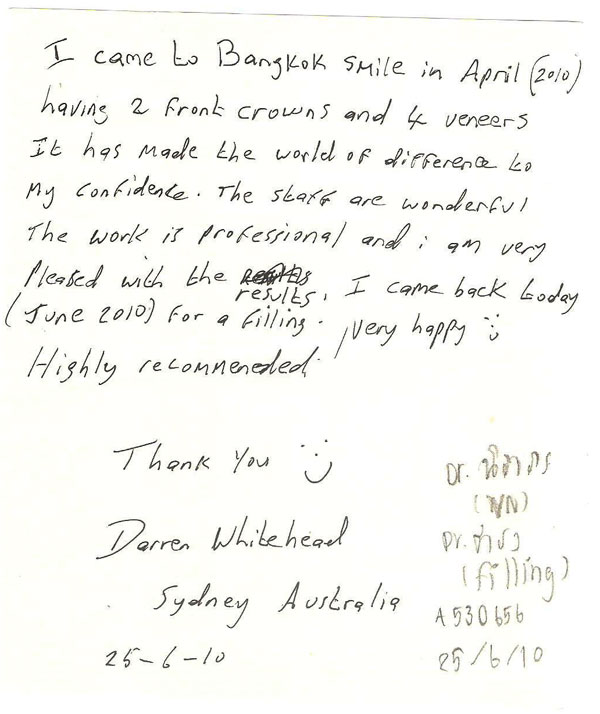 I came to Bangkok Smile in April (2010)
having 2 front crowns and 4 veneers
It has made the world of difference to
my confidence. The staff are wonderful
The work is professional and i am very
pleased with the results, I came back today
(June 2010) for a filling. very happy :)
Highly recommeneded.
Thank You :)
Darren Whitehead
Sydney Australia
25-6-10
Dr.
Dr.
(filling)
A530656
25/6/10